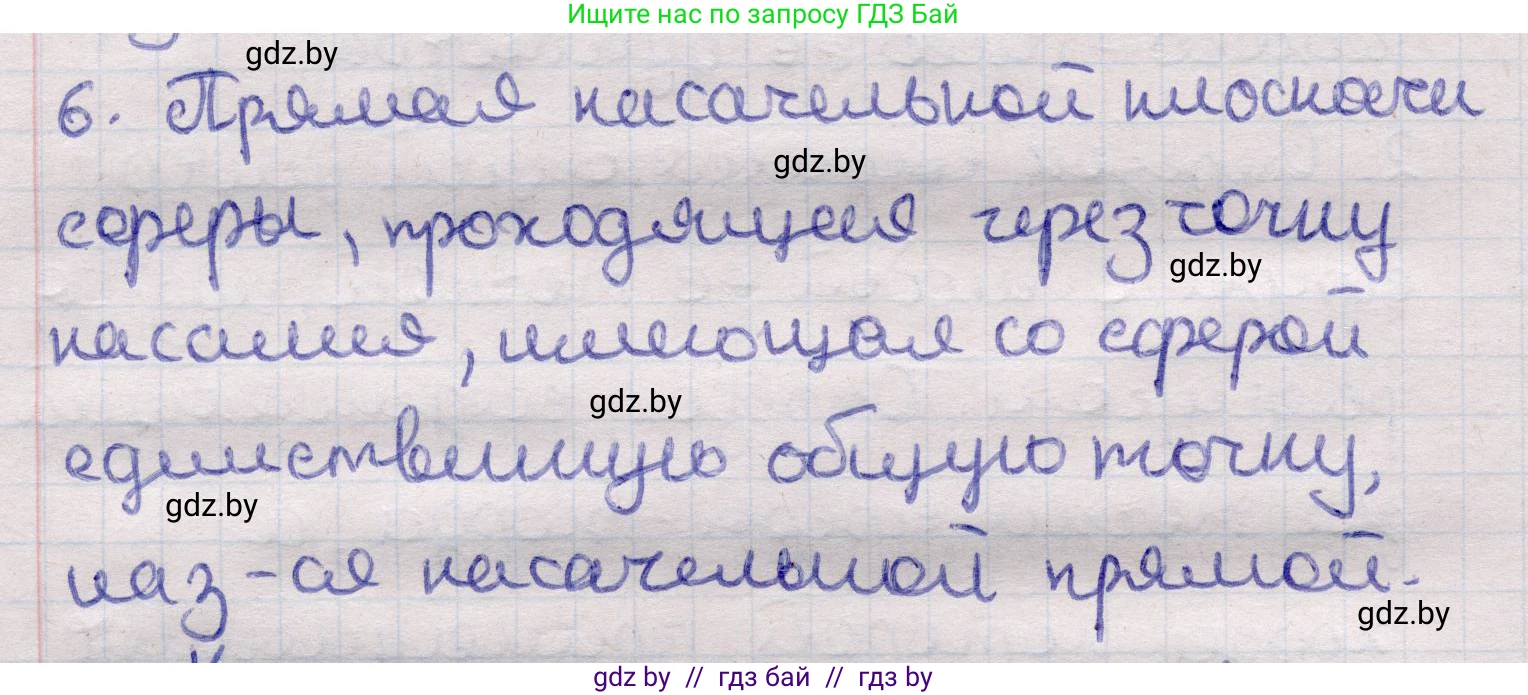 Ищите нас по запросу ГДЗ Бай
gdz.by
6. Прямая касательной плоскости
gdz.by
сферы, проходящая через точку
gdz.by
касания, имеющая со сферой
gdz.by
единственную общую точку,
gdz.by
наз-ся касательной прямой.
gdz.by
gdz by // гдз бай // гдз by